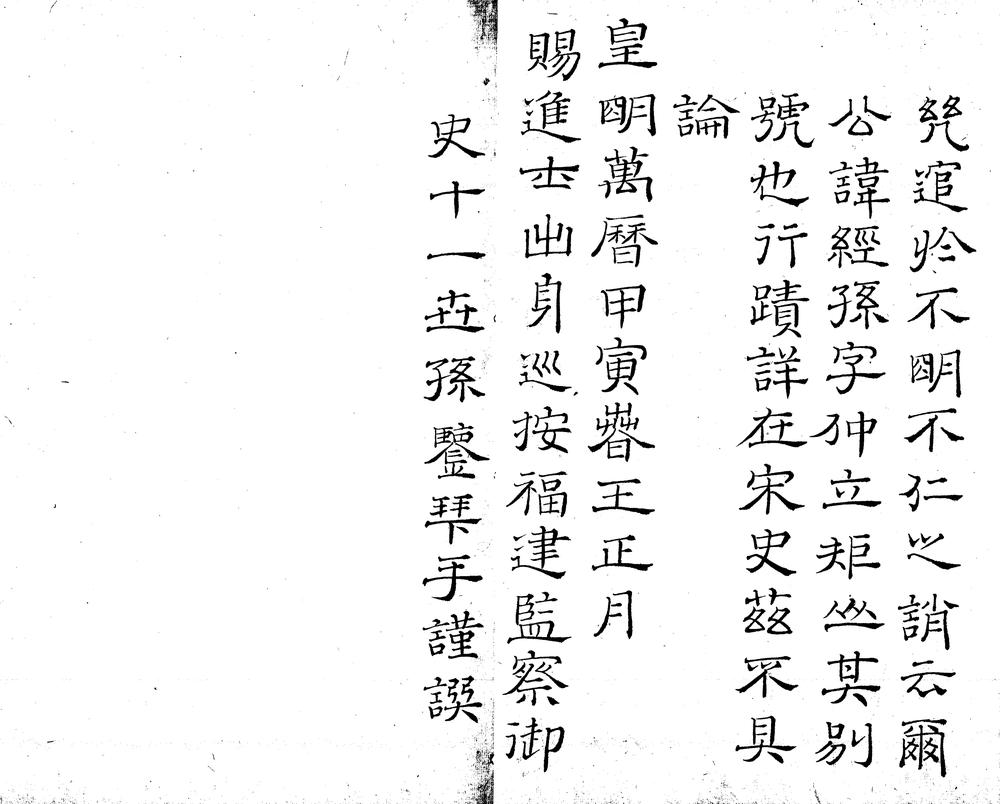 幾逭於不明不仁之誚云爾
公諱經孫字仲立矩山其別
號也行蹟詳在宋史茲不具
論
皇明萬曆甲寅春王正月
賜進士出身巡按福建監察御
史十一世孫鑒拜手謹譔